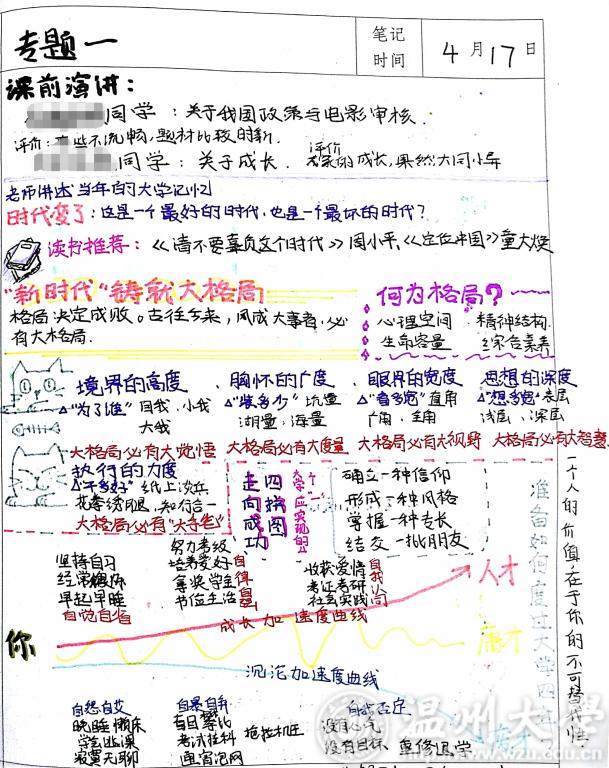 专题一
笔记时间 4月17日
课前演讲：
同学：关于我国政策与电影审核.
评价：有些不流畅，题材比较的新.
同学：关于成长. 评价 的成长，果然大同小异
老师讲述当年的大学记忆
时代变了：这是一个最好的时代，也是一个最坏的时代？
读书推荐：《请不要辜负这个时代》周小平，《定位中国》董大焕
"新时代"铸就大格局
格局决定成败。古往今来，凡成大事者，必有大格局.
何为格局？
心理空间 精神结构.
生命容量 综合素养
境界的高度、胸怀的广度、眼界的宽度、思想的深度
△"为了谁"自我、小我
大我
△"装多少"流量
湖量、海量
△"看多宽"直角
广角、全角
△"想多宽"表层
浅层、深层
大格局必有大觉悟 大格局必有大度量 大格局必有大视野 大格局必有大智慧
执行的力度
△"干多好"纸上谈兵
花拳绣腿、知行合一
大格局必有"大手笔"
走向成功
四拼图
大学应实现的"个一"
确立一种信仰
形成一种风格
掌握一种专长
结交一批朋友
准备如何度过大学四年
一个人的价值在于你的不可替代性.
坚持自习
经常锻炼
早起早睡
自觉自省
努力考级
培养爱好
等奖学金
书位生活
自律自
收获爱情
考证考研
社会实践
自我认同
人才
你
成长加速度曲线
庸才
沉沦加速度曲线
自怨自艾
晚睡懒床
学会逃课
寂寞无聊
自暴自弃
盲目攀比
考试挂科
通宵泡网
抢抢机工
自我否定
没有人气
没有目标
重修退学
温州大学
www.wzu.edu.cn